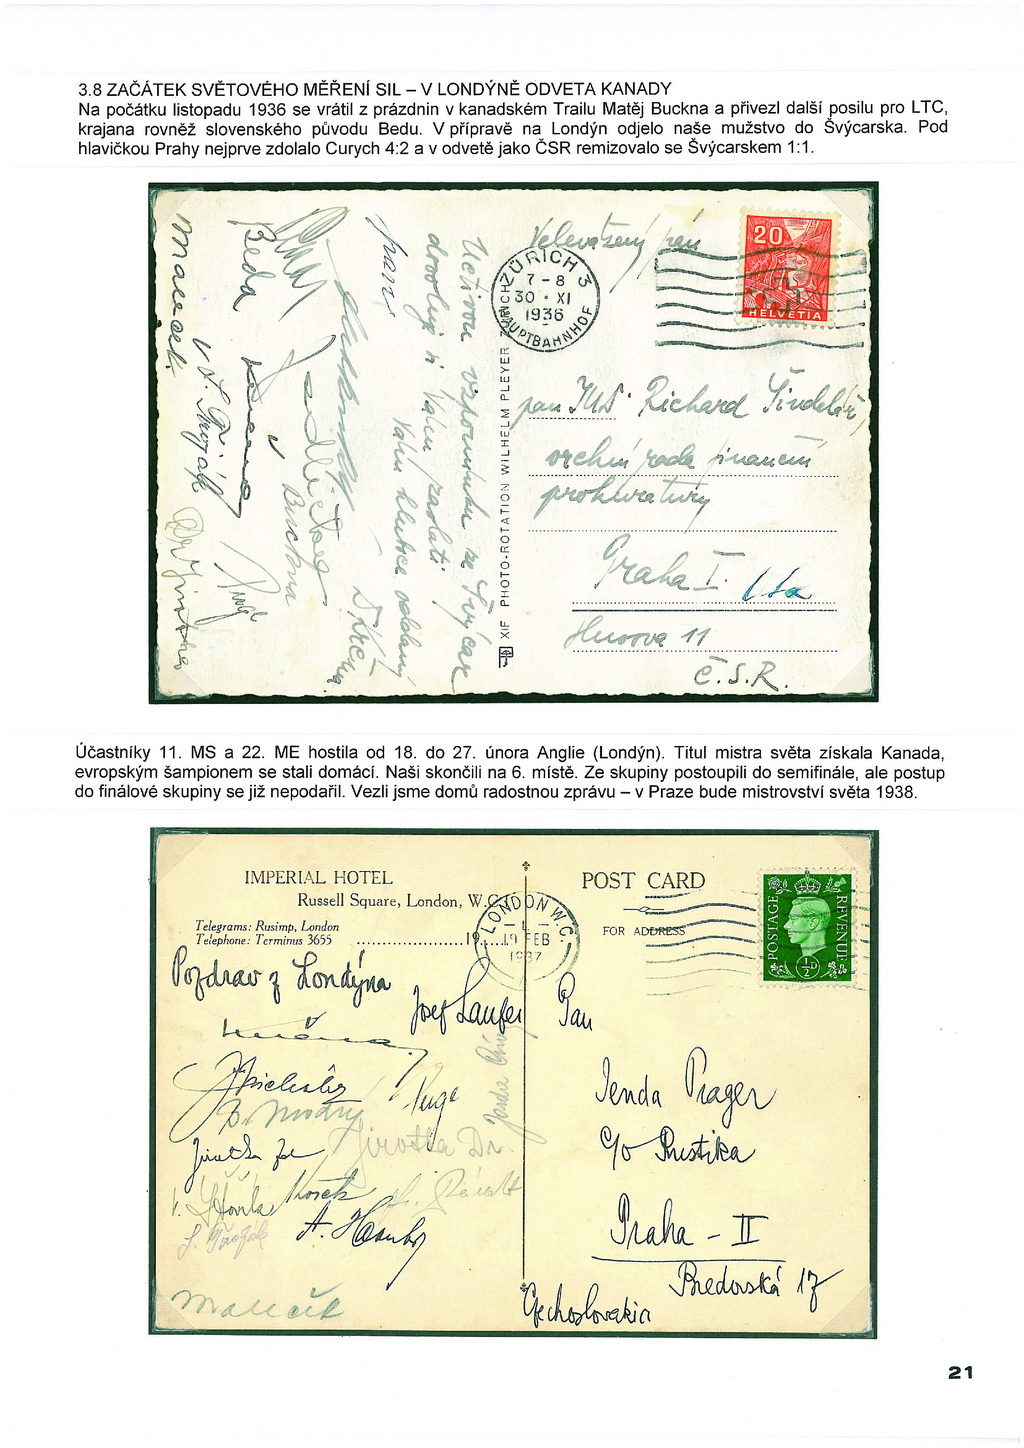 3.8 ZAČÁTEK SVĚTOVÉHO MĚŘENÍ SIL – V LONDÝNĚ ODVETA KANADY
Na počátku listopadu 1936 se vrátil z prázdnin v kanadském Trailu Matěj Buckna a přivezl další posilu pro LTC,
krajana rovněž slovenského původu Bedu. V přípravě na Londýn odjelo naše mužstvo do Švýcarska. Pod
hlavičkou Prahy nejprve zdolalo Curych 4:2 a v odvetě jako ČSR remizovalo se Švýcarskem 1:1.
Velevážený pan
ZÜRICH 3
7-8
30 · XI
1936
HAUPTBAHNHOF
20
HELVETIA
pan Richard Šindelář
vrchní rada finanční
prokuratury
Praha I.
Husova 11
Č.S.R.
XIF PHOTO-ROTATION WILHELM PLEYER ZÜRICH
Uctivou vzpomínku ze Švýcar
dovolují si Vám zaslati
Vám hluboce oddaný
Buckna
Beda
Maleček
Účastníky 11. MS a 22. ME hostila od 18. do 27. února Anglie (Londýn). Titul mistra světa získala Kanada,
evropským šampionem se stali domácí. Naši skončili na 6. místě. Ze skupiny postoupili do semifinále, ale postup
do finálové skupiny se již nepodařil. Vezli jsme domů radostnou zprávu – v Praze bude mistrovství světa 1938.
IMPERIAL HOTEL
Russell Square, London, W.C.
Telegrams: Rusimp, London
Telephone: Terminus 3655
19
LONDON W.C.
19 FEB
1937
POST CARD
FOR ADDRESS
POSTAGE
REVENUE
½D
Pozdrav z Londýna
Josef Laufer
Jirotka Dr.
Maleček
Pan
Jenda Prager
c/o Rustika
Praha - II
Bredovská 17
Czechoslovakia
21